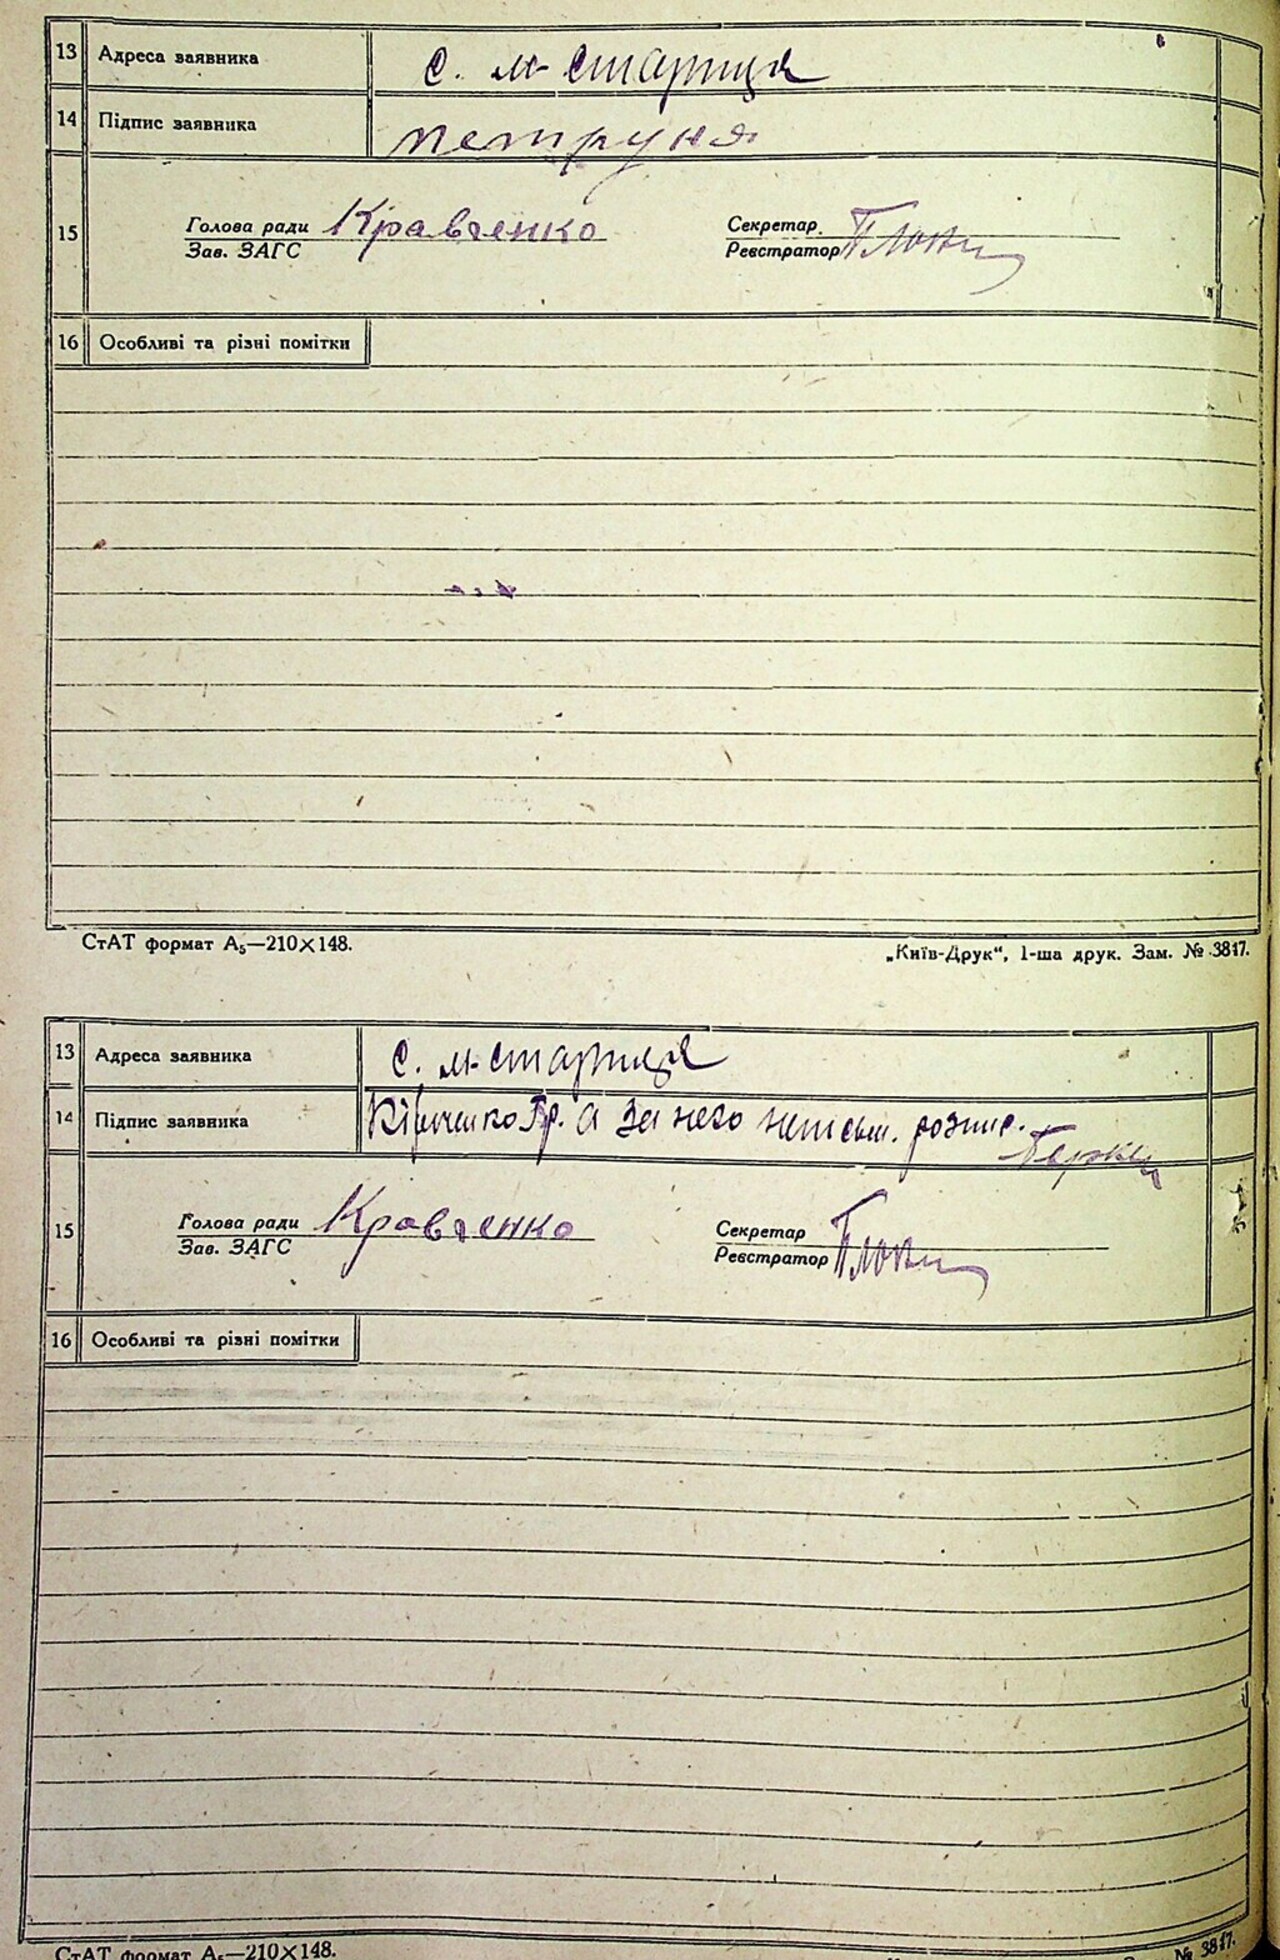 13 Адреса заявника с. м-стариця
14 Підпис заявника петруня
15 Голова ради Кравченко Секретар
Зав. ЗАГС Реєстратор
16 Особливі та різні помітки
СтАТ формат А₅—210×148. „Київ-Друк“, 1-ша друк. Зам. № 3817.
13 Адреса заявника с. м-стариця
14 Підпис заявника Кірченко Гр. а за него неписьм. розпис.
15 Голова ради Кравченко Секретар
Зав. ЗАГС Реєстратор
16 Особливі та різні помітки
СтАТ формат А₅—210×148. № 3817.